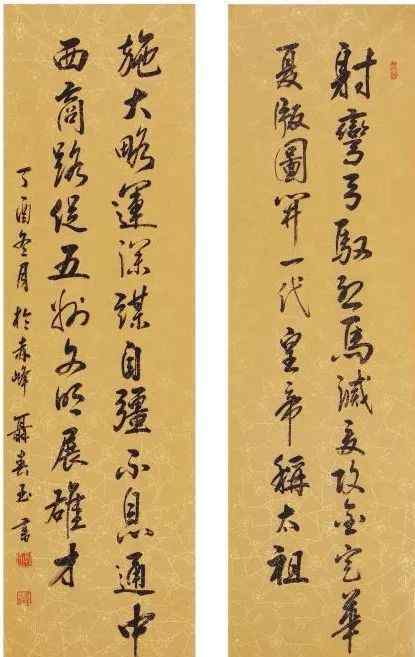 射彎弓馭烈馬滅夏攻金定華
夏版圖開一代皇帝稱太祖
施大略運深謀自彊不息通中
西商路促五洲文明展雄才
丁酉冬月於赤峰聶春玉書